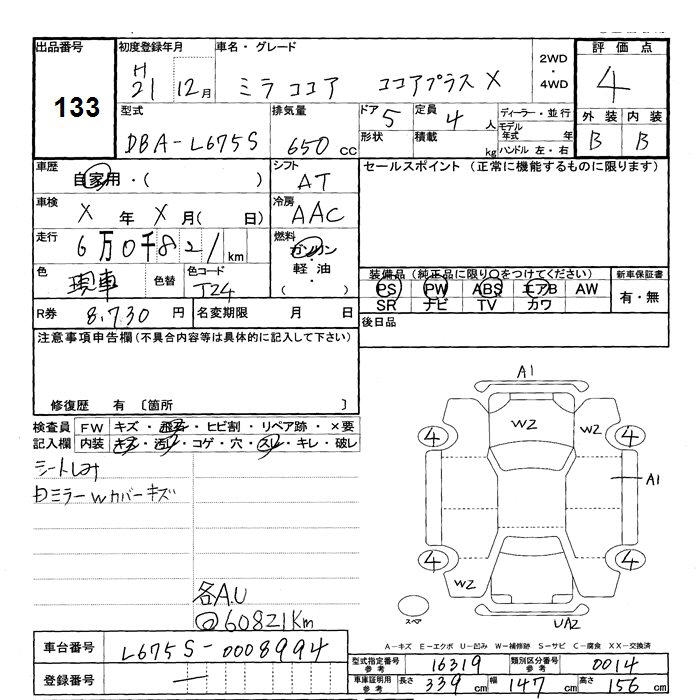 出品番号
133
初度登録年月
H 21 12月
車名・グレード
ミラ ココア ココアプラス X
2WD
・
4WD
評価点
4
型式
DBA-L675S
排気量
650 cc
ドア 5
形状
定員 4 人
積載 kg
ディーラー・並行
モデル年式 年
ハンドル 左・右
外装 内装
B B
車歴
自家用・( )
シフト
AT
セールスポイント (正常に機能するものに限ります)
車検
X 年 X 月( 日)
冷房
AAC
走行
6万0千821 km
燃料
ガソリン
・
軽油
・
( )
色
現車
色替
色コード
T24
装備品(純正品に限り○をつけてください)
PS PW ABS エアB AW
SR ナビ TV カワ
新車保証書
有・無
R券 8,730 円
名変期限 月 日
後日品
注意事項申告欄(不具合内容等は具体的に記入して下さい)
修復歴 有 〔箇所 〕
検査員記入欄
FW キズ・飛石・ヒビ割・リペア跡・×要
内装 キズ・汚レ・コゲ・穴・スレ・キレ・破レ
シートしみ
Dミラーwカバーキズ
各A.U
60821Km
A1
W2
W2
4
4
A1
4
4
W2
スペア
UA2
A-キズ E-エクボ U-凹み W-補修跡 S-サビ C-腐食 XX-交換済
車台番号
L675S-0008994
登録番号
—
型式指定番号 参考 16319
類別区分番号 参考 0014
車庫証明用 参考 長さ 339 cm 幅 147 cm 高さ 156 cm